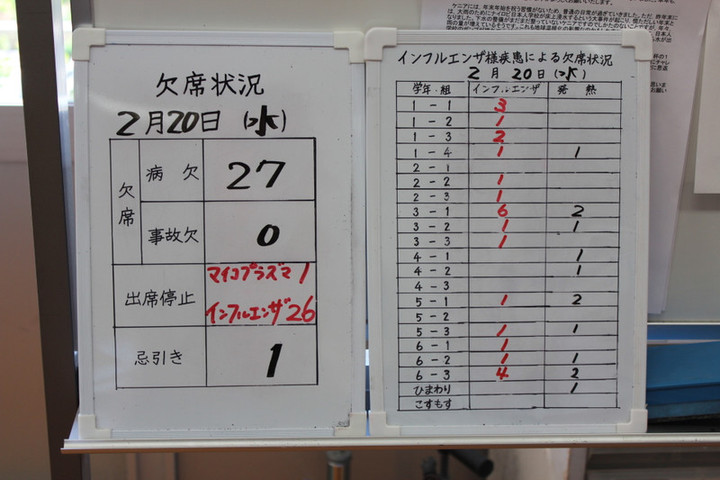 欠席状況
2月20日(水)
欠席
病欠 27
事故欠 0
出席停止
マイコプラズマ 1
インフルエンザ 26
忌引き 1
インフルエンザ様疾患による欠席状況
2月20日(水)
学年・組 インフルエンザ 発熱
1-1 3
1-2 1
1-3 2
1-4 1 1
2-1
2-2 1
2-3 1
3-1 6 2
3-2 1 1
3-3 1
4-1 1
4-2 1
4-3
5-1 1 2
5-2
5-3 1 1
6-1 1
6-2 1 1
6-3 4 2
ひまわり 1
こすもす